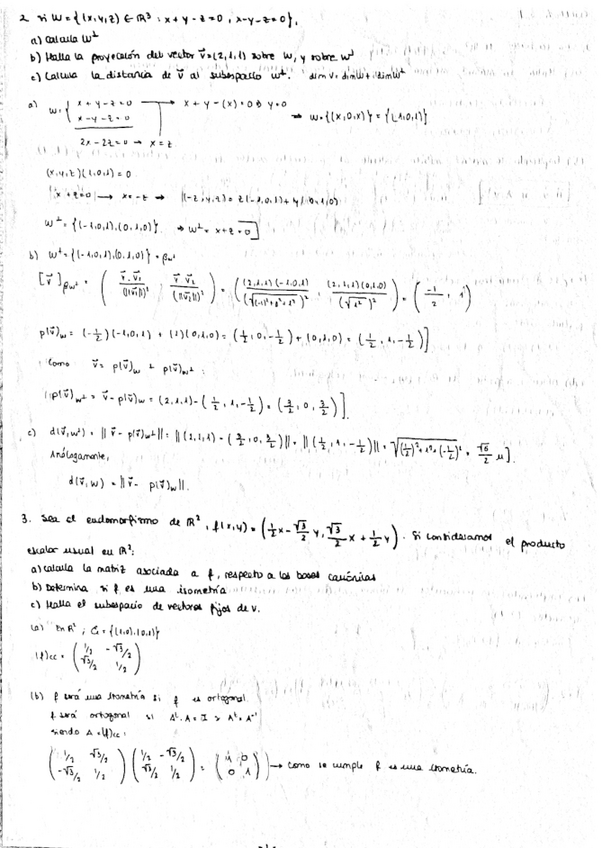 2. Si W = {(x,y,z) ∈ ℝ³ : x+y-z=0, x-y-z=0},
a) Calcula W⊥
b) Halla la proyección del vector v⃗=(2,1,1) sobre W, y sobre W⊥
c) Calcula la distancia de v⃗ al subespacio W⊥. dim V = dim W + dim W⊥
a) W = { x+y-z=0 → x+y-(x)=0 y=0
x-y-z=0 → W={(x,0,x)} = {(1,0,1)}
2x-2z=0 → x=z
(x,y,z)(1,0,1) = 0
x+z=0 → x=-z → (-z,y,z) = z(-1,0,1) + y(0,1,0)
W⊥ = {(-1,0,1),(0,1,0)} → W⊥ = x+z=0]
b) W⊥ = {(-1,0,1),(0,1,0)} = βW⊥
[v⃗]βW⊥ = ( v⃗·v⃗₁/(||v⃗₁||)² , v⃗·v⃗₂/(||v⃗₂||)² ) = ( (2,1,1)(-1,0,1)/(√((-1)²+0²+1²))² , (2,1,1)(0,1,0)/(√1²)² ) = ( -1/2 , 1 )
p(v⃗)w = (-1/2)(-1,0,1) + (1)(0,1,0) = (1/2, 0, -1/2) + (0,1,0) = (1/2, 1, -1/2)]
Como v⃗ = p(v⃗)w + p(v⃗)w⊥ :
p(v⃗)w⊥ = v⃗ - p(v⃗)w = (2,1,1) - (1/2, 1, -1/2) = (3/2, 0, 3/2)].
c) d(v⃗,W⊥) = || v⃗ - p(v⃗)w⊥ || = || (2,1,1) - (3/2, 0, 3/2) || = || (1/2, 1, -1/2) || = √((1/2)²+1²+(-1/2)²) = √6/2 u].
Análogamente,
d(v⃗,W) = || v⃗ - p(v⃗)w ||.
3. Sea el endomorfismo de ℝ², f(x,y) = (1/2 x - √3/2 y, √3/2 x + 1/2 y). Si consideramos el producto
escalar usual en ℝ²:
a) Calcula la matriz asociada a f, respecto a las bases canónicas
b) Determina si f es una isometría
c) Halla el subespacio de vectores fijos de v.
(a) En ℝ², C = {(1,0),(0,1)}
(f)cc = ( 1/2 -√3/2
√3/2 1/2 )
(b) f será una isometría si f es ortogonal.
f será ortogonal si Aᵗ·A = I > Aᵗ = A⁻¹
siendo A = (f)cc:
( 1/2 √3/2 ) ( 1/2 -√3/2 ) = ( 1 0 ) → como se cumple f es una isometría.
( -√3/2 1/2 ) ( √3/2 1/2 ) ( 0 1 )